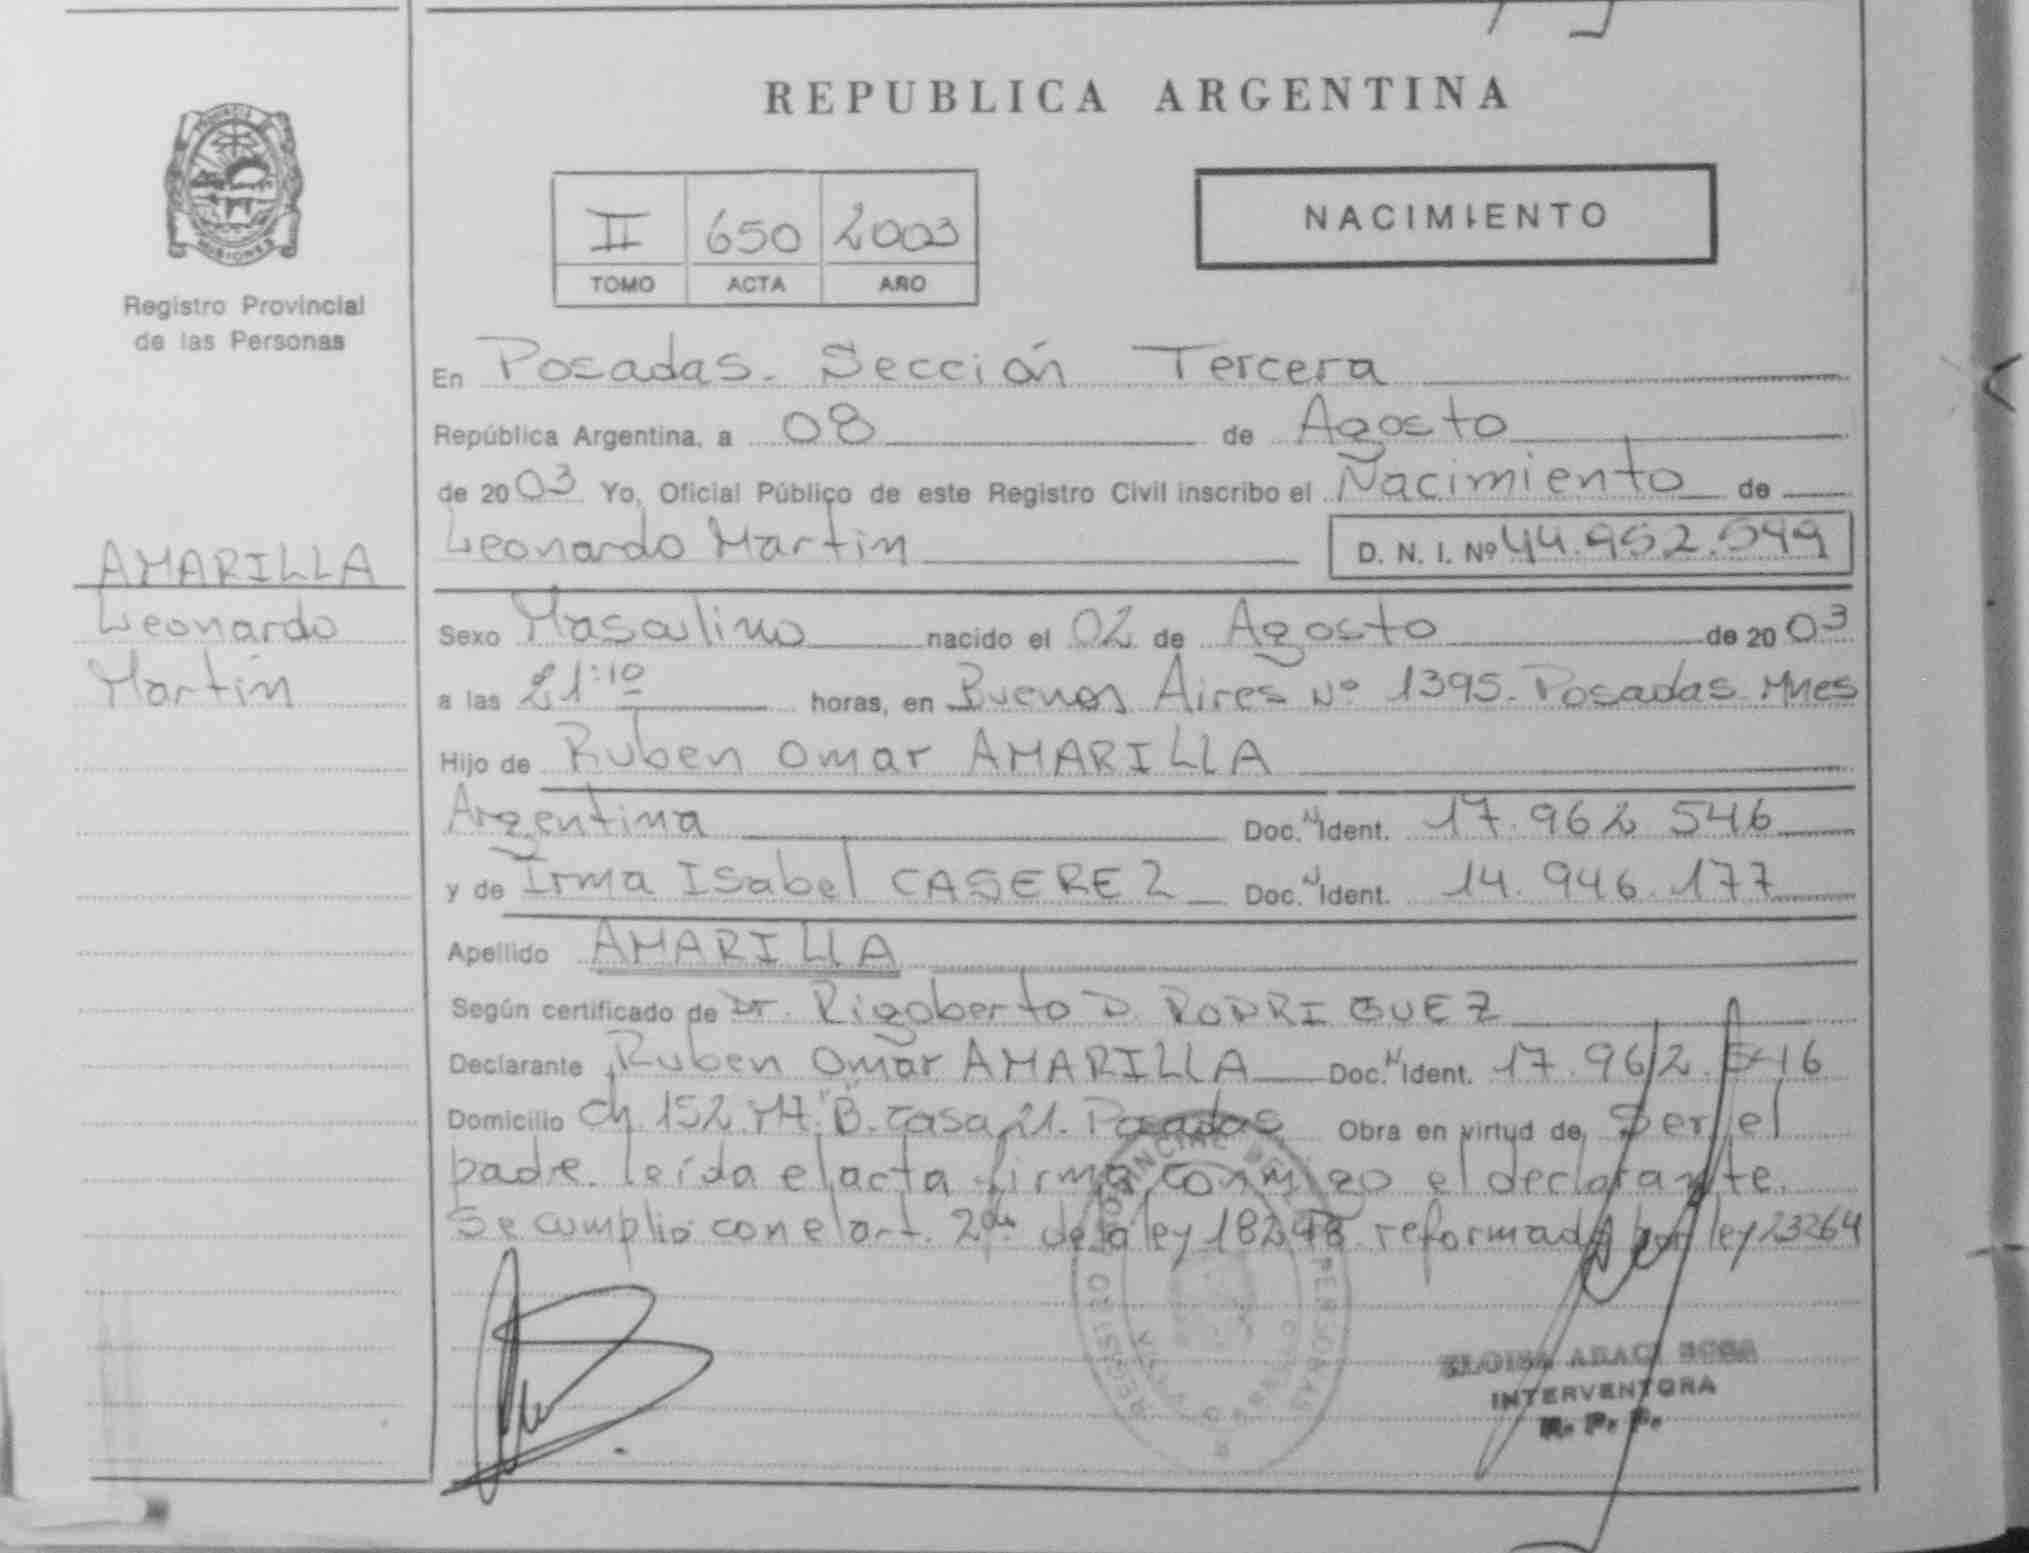 REPUBLICA ARGENTINA
PROVINCIA DE
MISIONES
Registro Provincial
de las Personas
II 650 2003
TOMO ACTA AÑO
NACIMIENTO
En Posadas. Sección Tercera
República Argentina, a 08 de Agosto
de 2003 Yo, Oficial Público de este Registro Civil inscribo el Nacimiento de
Leonardo Martín D. N. I. Nº 44.952.549
AMARILLA
Leonardo
Martín
Sexo Masculino nacido el 02 de Agosto de 2003
a las 21:10 horas, en Buenos Aires Nº 1395. Posadas. Mnes
Hijo de Ruben Omar AMARILLA
Argentina Doc. N Ident. 17.962 546
y de Irma Isabel CASEREZ Doc. N Ident. 14.946.177
Apellido AMARILLA
Según certificado de Dr. Rigoberto D. RODRIGUEZ
Declarante Ruben Omar AMARILLA Doc. N Ident. 17.962.546
Domicilio Ch. 152. M. "B". casa 21. Posadas Obra en virtud de Ser el
padre. leída el acta firma conmigo el declarante.
Se cumplio con el art. 2do de la ley 18248 reformado por ley 23264
REGISTRO PROVINCIAL DE PERSONAS
POSADAS
INTERVENTORA
R. P. P.